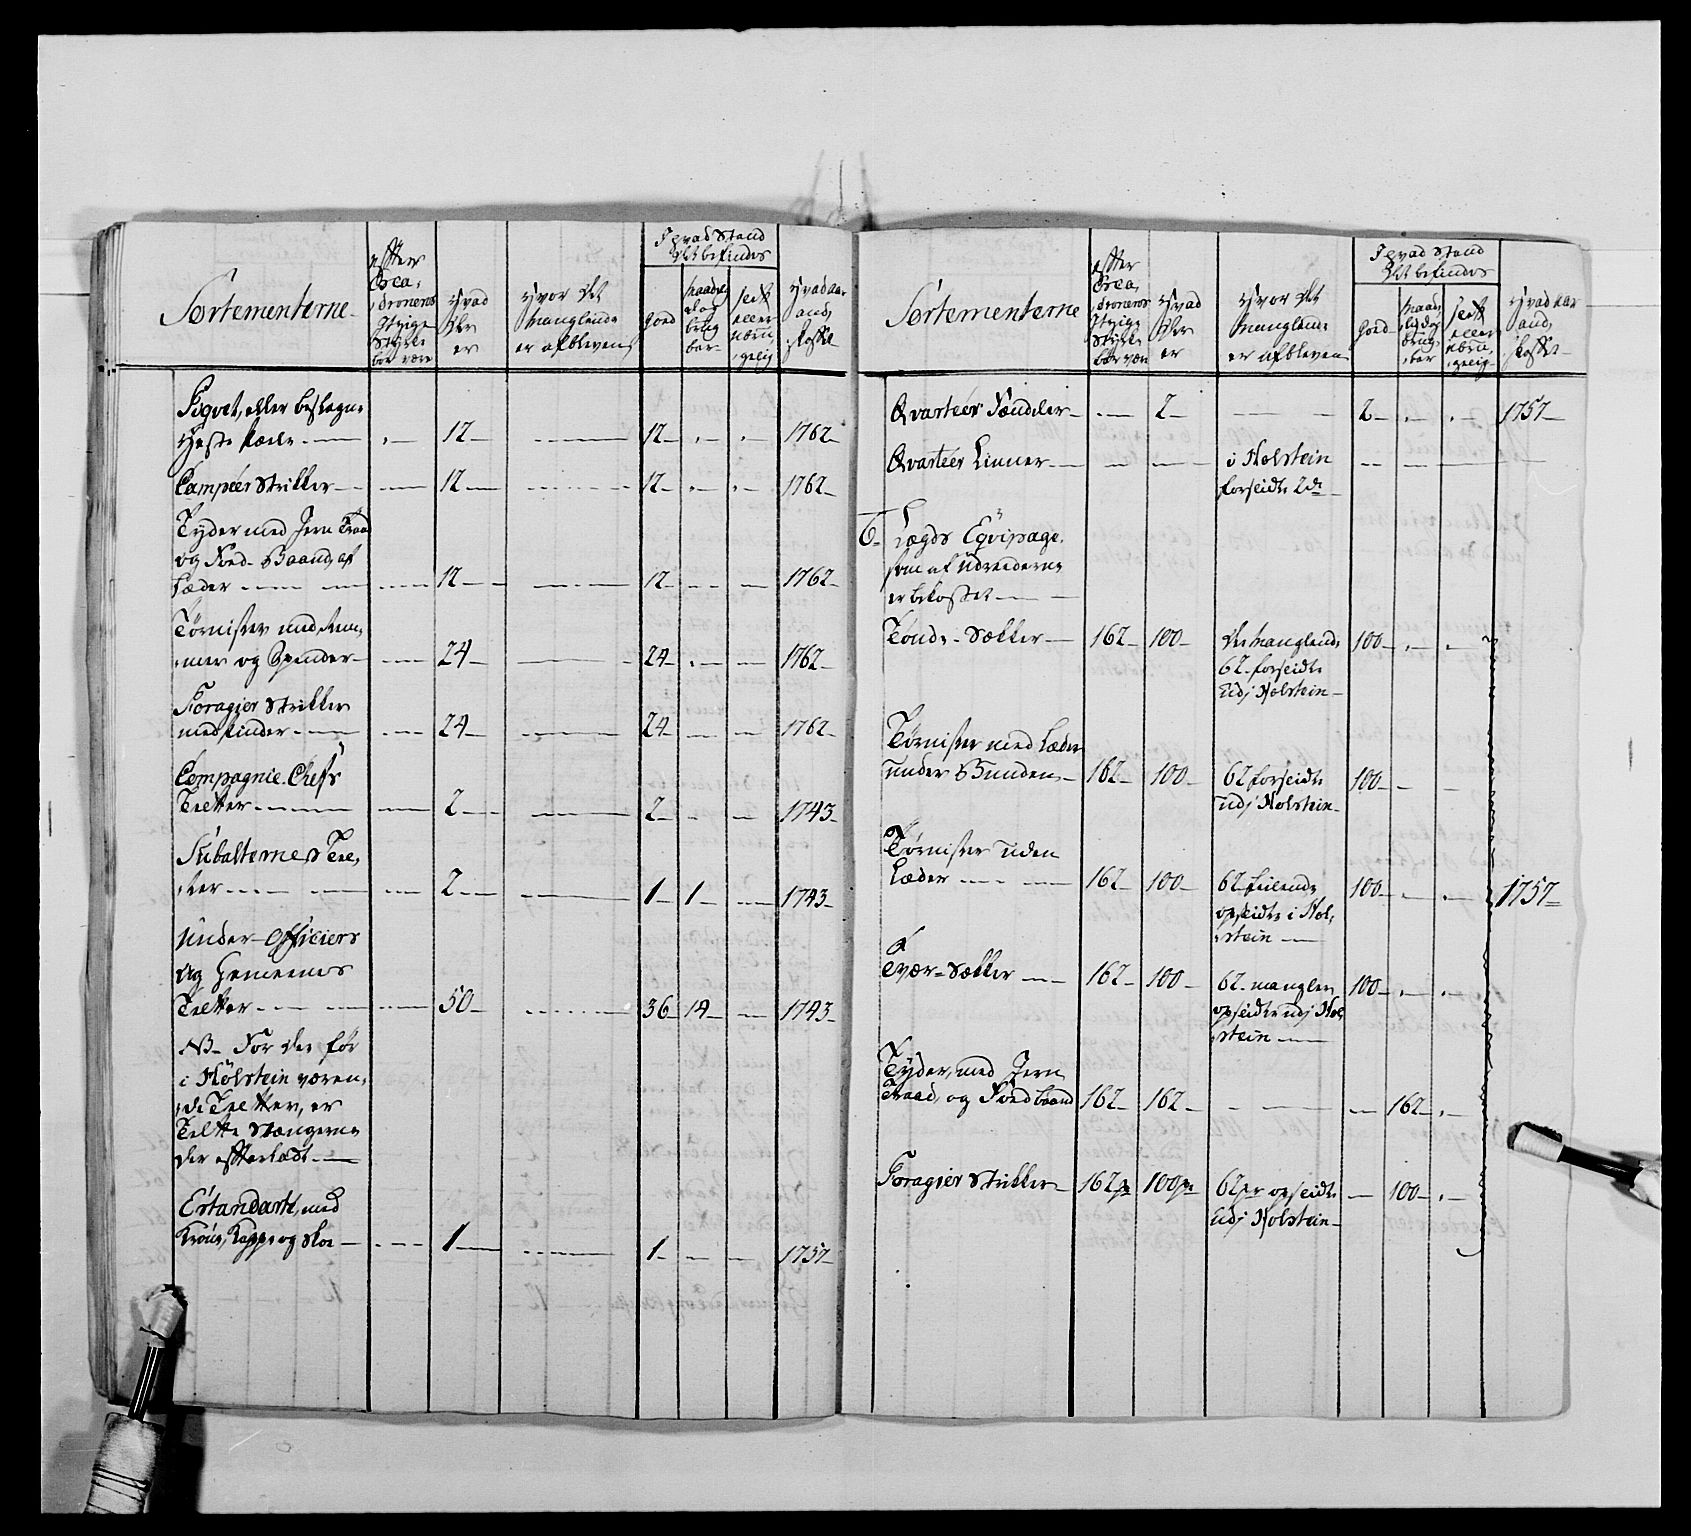 Sortementerne
efter
Esca,
dronens
Styrke
bør være
Hvad
der
er
Hvor det
Manglende
er afbleven
I hvad Stand
det befindes
Goed
Maadelig
dog
brug
bar
Slett
eller
ubru,
gelig
Hvad aar
an,
skaffet
Piqvet, eller beslagne
Heste Pæle 12 12 1762
Campeér Strikker 12 12 1762
Tyder med Jern Traad
og Foed-Baand af
Læder 12 12 1762
Tørnister med Rem,
mer og Spender 24 24 1762
Foragier Strikker
med Pinder 24 24 1762
Compagnie-Chefs
Telter 2 2 1743
Subalternes Tel,
ter 2 1 1 1743
Under-Officiers
og Gemeenes
Telter 50 36 14 1743
NB. For de før
i Holstein væren,
de Telter, er
Telte Stængerne
der efterladt
Estandart, med
Krone, Kappe og Skoe 1 1 1757
Sortementerne
efter
Esca,
dronens
Styrke
bør være
Hvad
der
er
Hvor det
Manglende
er afbleven
I hvad Stand
det befindes
Goed
Maade,
lig dog
brug,
bar
Slett
eller
ubru,
gelig
Hvad aar
an,
skaffet
Qvarteer Fændeler 2 2 1757
Qvarteer Linner i Holstein
forslidt 2de
6. Lægds Eqvipage
som af Udrederne
er bekostet
Fonds-Sækker 162 100 De Manglende 100
62 forslidt
udj Holstein
Tørnister med Læder
under Bunden 162 100 62 forslidt 100
udj Holstein
Tørnister uden
Læder 162 100 62 feilende 100 1757
opslidt i Hol,
stein
Tvær-Sækker 162 100 62 mangler 100
opslidt udj Hol,
stein
Tyder, med Jern
Traad, og Foedbaand 162 162 162
Foragier Strikker 162 pr 100 pr 62 pr opslidt 100
udj Holstein